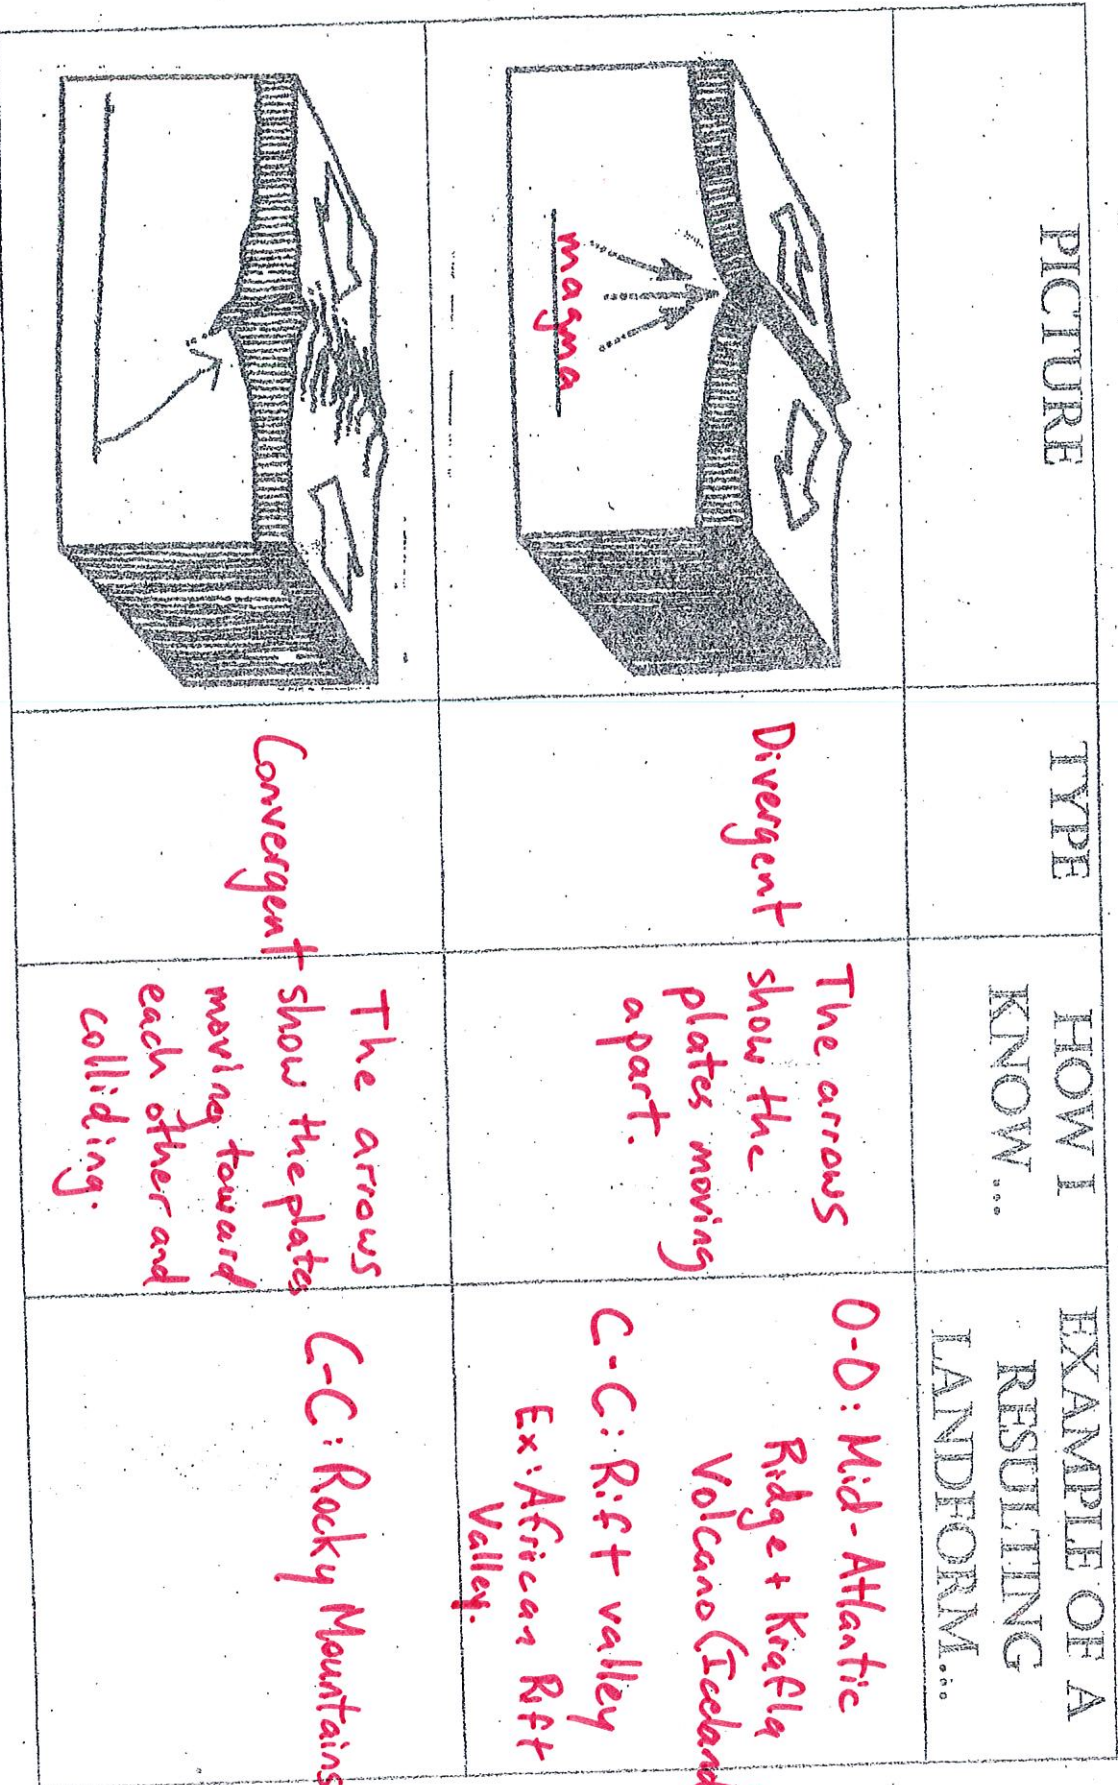 PICTURE
TYPE
HOW I
KNOW...
EXAMPLE OF A
RESULTING
LANDFORM...
magma
Divergent
The arrows
show the
plates moving
apart.
O-O: Mid-Atlantic
Ridge + Krafla
Volcano (Iceland
C-C: Rift valley
Ex: African Rift
Valley.
Convergent
The arrows
show the plates
moving toward
each other and
colliding.
C-C: Rocky Mountains